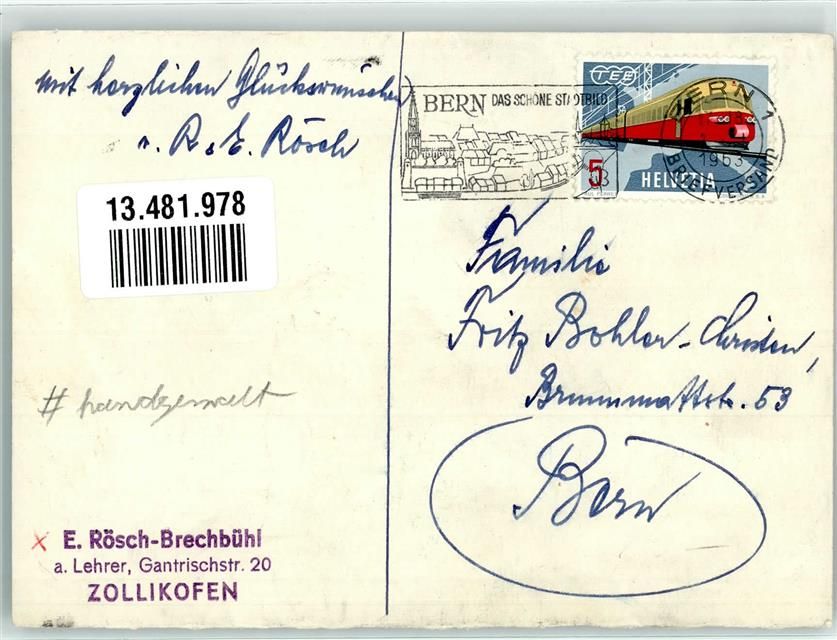 mit herzlichen Glückwünschen
v. R. E. Rösch
13.481.978
# handgemalt
x E. Rösch-Brechbühl
a. Lehrer, Gantrischstr. 20
ZOLLIKOFEN
BERN DAS SCHÖNE STADTBILD
TEE
5
HELVETIA
BERN
1963
BRIEFVERSAND
Familie
Fritz Bohler-Christen,
Brunnmattstr. 53
Bern